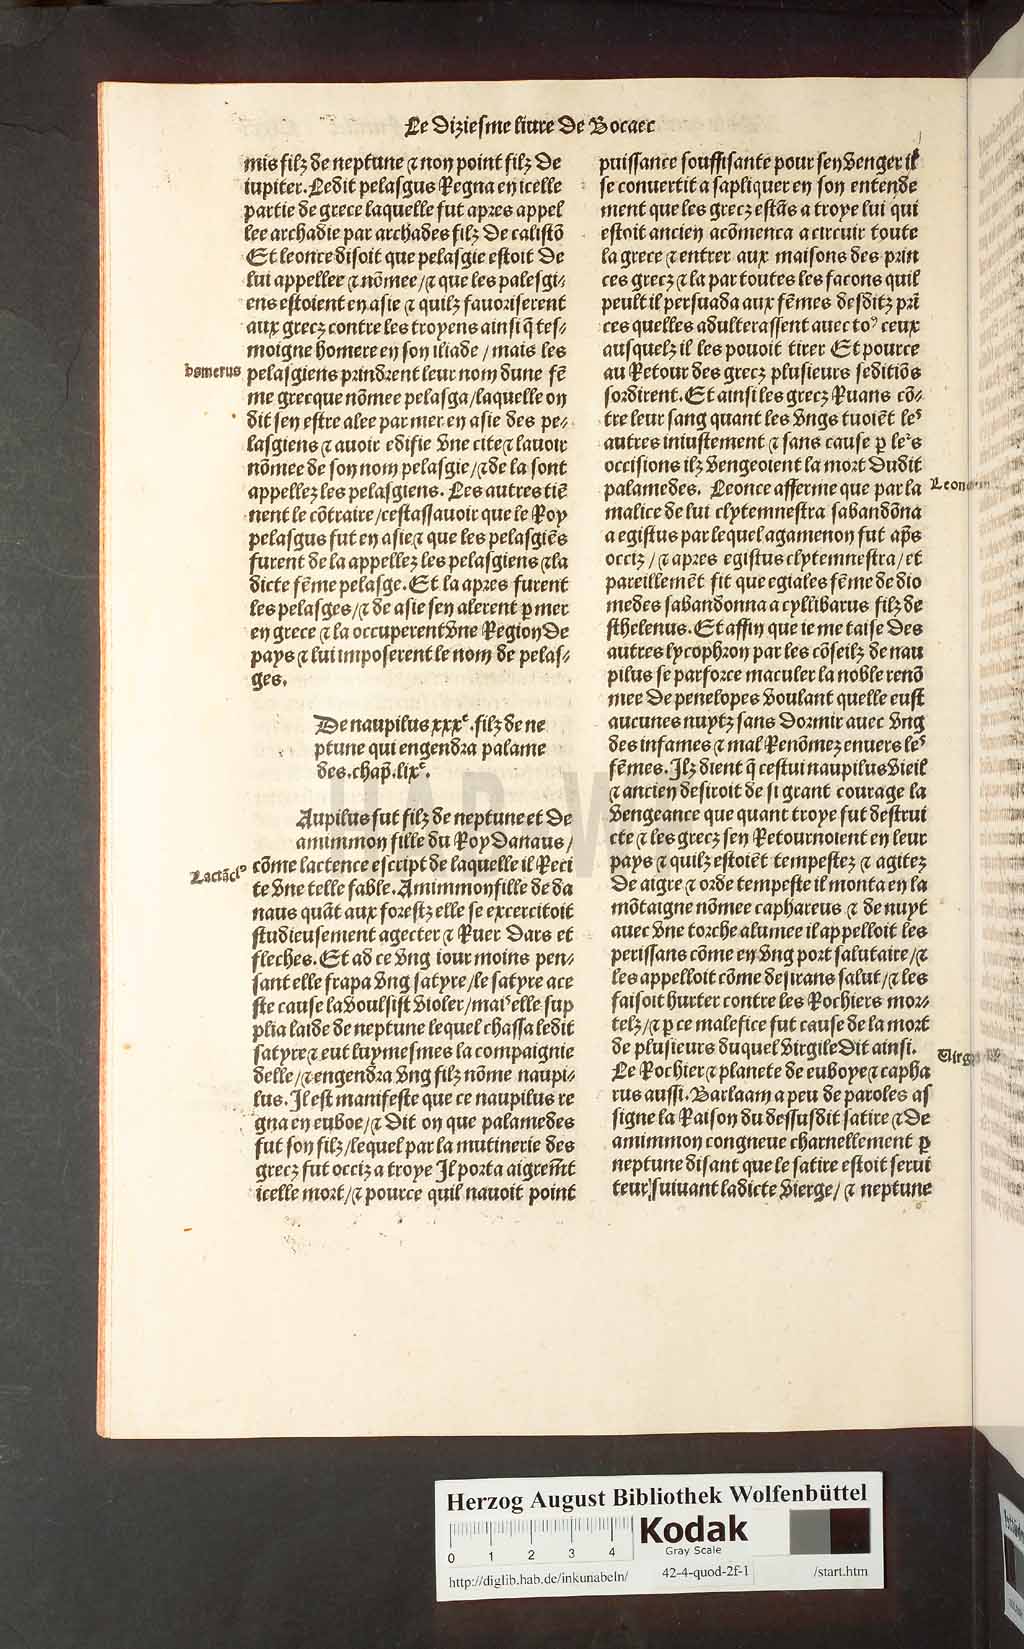 Le diziesme liure de Bocace
mis filz de neptune ⁊ non point filz de
iupiter. Ledit pelasgus Regna en icelle
partie de grece laquelle fut apres appel
lee archadie par archades filz de calistõ
Et leonce disoit que pelasgie estoit de
lui appellee ⁊ nõmee/⁊ que les palesgi⸗
ens estoient en asie ⁊ quilz fauoriserent
aux grecz contre les troyens ainsi q̃ tes⸗
moigne homere en son iliade / mais les
homerus
pelasgiens prindrent leur nom dune fẽ
me grecque nõmee pelasga/laquelle on
dit sen estre alee par mer en asie des pe⸗
lasgiens ⁊ auoir edifie vne cite ⁊ lauoir
nõmee de son nom pelasgie/⁊ de la sont
appellez les pelasgiens. Les autres tiẽ
nent le cõtraire/cestassauoir que le Roy
pelasgus fut en asie ⁊ que les pelasgiẽs
furent de la appellez les pelasgiens ⁊ la
dicte fẽme pelasge. Et la apres furent
les pelasges/⁊ de asie sen alerent p mer
en grece ⁊ la occuperent vne Region de
pays ⁊ lui imposerent le nom de pelas⸗
ges.
De naupilus xxxᵉ. filz de ne
ptune qui engendra palame
des. chap̃. lixᵉ.
Aupilus fut filz de neptune et de
amimmon fille du Roy Danaus/
Lactãciꝰ
cõme lactence escript de laquelle il Reci
te vne telle fable. Amimmon fille de da
naus quãt aux forestz elle se excercitoit
studieusement a gecter ⁊ Ruer dars et
fleches. Et ad ce vng iour moins pen⸗
sant elle frapa vng satyre/le satyre a ce
ste cause la voulsist violer/maiˢ elle sup
plia laide de neptune lequel chassa ledit
satyre ⁊ eut luy mesmes la compaignie
delle/⁊ engendra vng filz nõme naupi⸗
lus. Il est manifeste que ce naupilus re
gna en euboe/⁊ dit on que palamedes
fut son filz/lequel par la mutinerie des
grecz fut occiz a troye Il porta aigremẽt
icelle mort/⁊ pource quil nauoit point
puissance souffisante pour sen venger il
se conuertit a sapliquer en son entende
ment que les grecz estãs a troye lui qui
estoit ancien acõmenca a circuir toute
la grece ⁊ entrer aux maisons des prin
ces grecz ⁊ la par toutes les facons quil
peult il persuada aux fẽmes desditz prĩ
ces quelles adulterassent auec toꝰ ceux
ausquelz il les pouoit tirer Et pource
au Retour des grecz plusieurs seditiõs
sordirent. Et ainsi les grecz Ruans cõ⸗
tre leur sang quant les vngs tuoiẽt leˢ
autres iniustement ⁊ sans cause p leˢ
occisions ilz vengeoient la mort dudit
palamedes. Leonce afferme que par la
malice de lui clytemnestra sabandõna
a egistus par lequel agamenon fut ap̃s
occiz/⁊ apres egistus clytemnestra/et
pareillemẽt fit que egiales fẽme de dio
medes sabandonna a cyllibarus filz de
sthelenus. Et affin que ie me taise des
autres lycophron par les cõseilz de nau
pilus se parforce maculer la noble renõ
mee de penelopes voulant quelle eust
aucunes nuytz sans dormir auec vng
des infames ⁊ mal Renõmez enuers leˢ
fẽmes. Ilz dient q̃ cestui naupilus vieil
⁊ ancien desiroit de si grant courage la
vengeance que quant troye fut destrui
cte ⁊ les grecz sen Retournoient en leur
pays ⁊ quilz estoiẽt tempestez ⁊ agitez
de aigre ⁊ orde tempeste il monta en la
mõtaigne nõmee caphareus ⁊ de nuyt
auec vne torche alumee il appelloit les
perissans cõme en vng port salutaire/⁊
les appelloit cõme desirans salut/⁊ les
faisoit hurter contre les Rochiers mor⸗
telz/⁊ p ce malefice fut cause de la mort
de plusieurs duquel virgile dit ainsi.
Le Rochier ⁊ planete de euboye ⁊ capha
rus aussi. Barlaam a peu de paroles as
signe la Raison du dessusdit satire ⁊ de
amimmon congneue charnellement p
neptune disant que le satire estoit serui
teur suiuant ladicte vierge/⁊ neptune
HAB W
Herzog August Bibliothek Wolfenbüttel
0 1 2 3 4
Kodak
Gray Scale
http://diglib.hab.de/inkunabeln/ 42-4-quod-2f-1 /start.htm